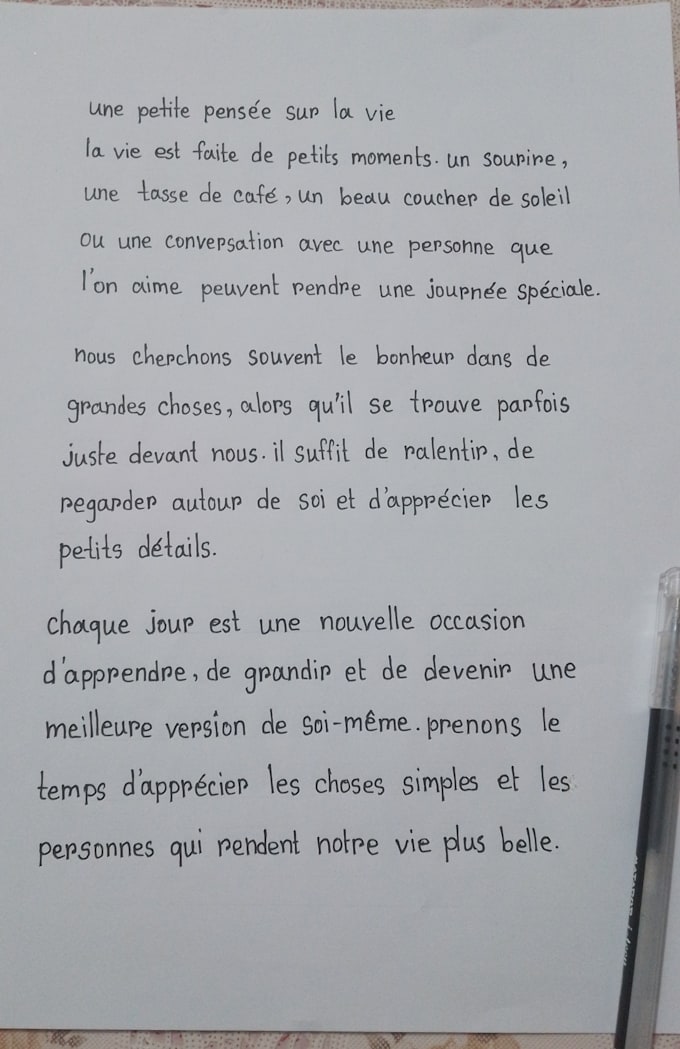 une petite pensée sur la vie
la vie est faite de petits moments. un sourire,
une tasse de café, un beau coucher de soleil
ou une conversation avec une personne que
l'on aime peuvent rendre une journée spéciale.
nous cherchons souvent le bonheur dans de
grandes choses, alors qu'il se trouve parfois
juste devant nous. il suffit de ralentir, de
regarder autour de soi et d'apprécier les
petits détails.
chaque jour est une nouvelle occasion
d'apprendre, de grandir et de devenir une
meilleure version de soi-même. prenons le
temps d'apprécier les choses simples et les
personnes qui rendent notre vie plus belle.